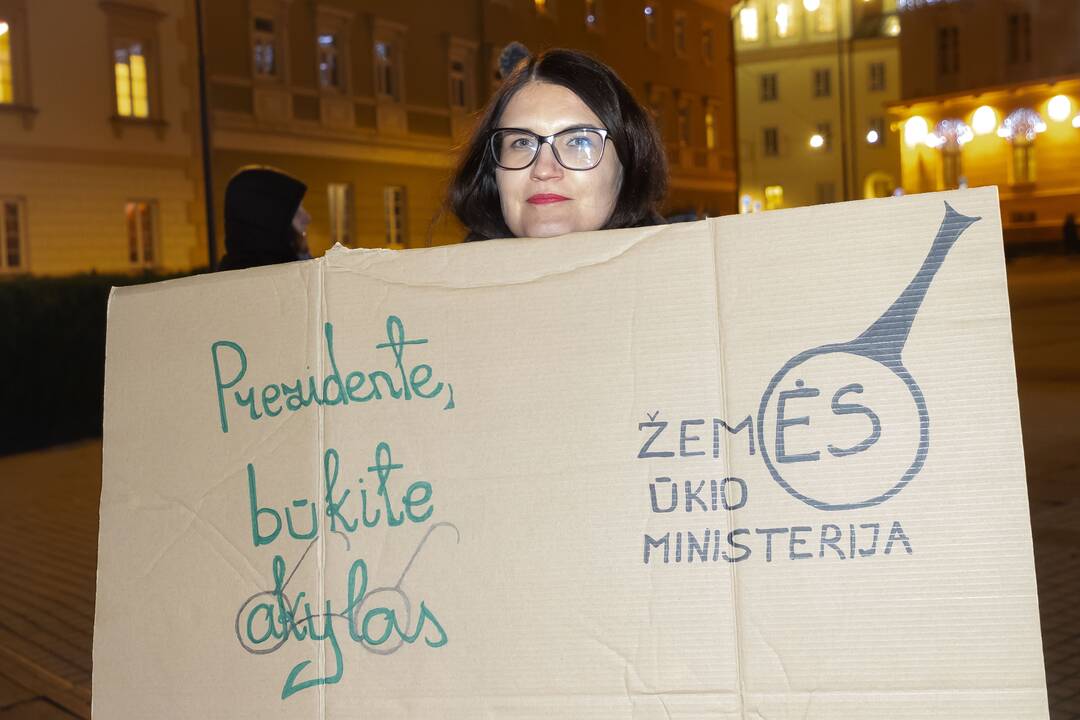 Prezidente,
būkite
akylas
ŽEMĖS
ŪKIO
MINISTERIJA